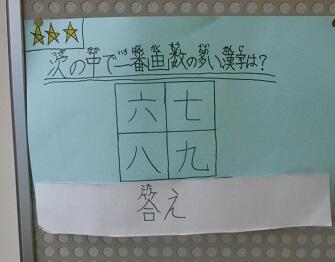 次の中で一番画数の多い漢字は?
六 七
八 九
答え